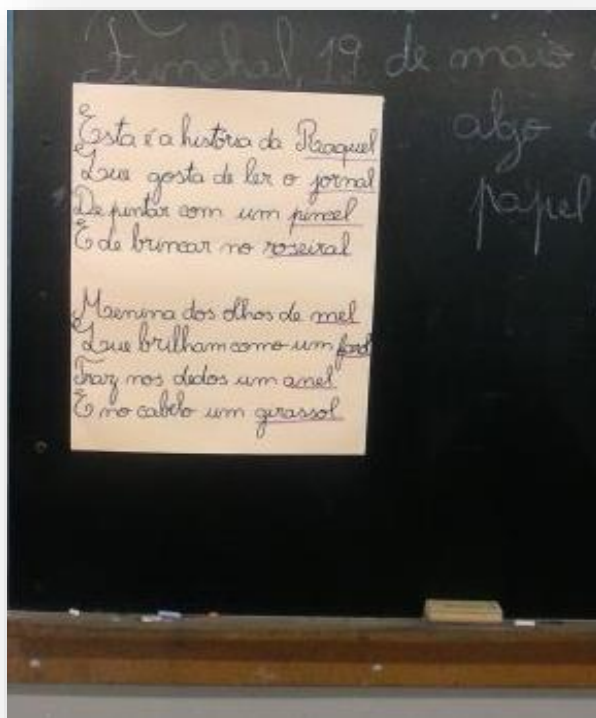 Funchal, 19 de maio
algo
papel
Esta é a história da Raquel
Que gosta de ler o jornal
De pintar com um pincel
E de brincar no roseiral
Menina dos olhos de mel
Que brilham como um farol
Traz nos dedos um anel
E no cabelo um girassol